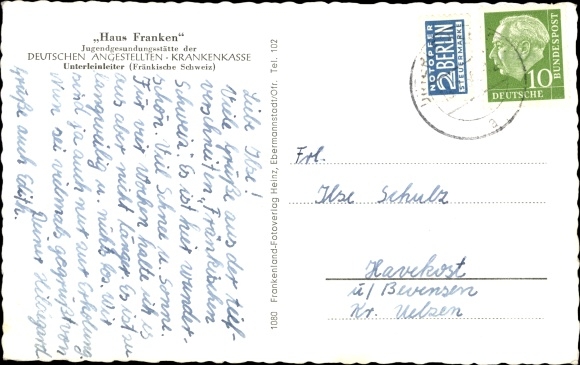 „Haus Franken"
Jugendgesundungsstätte der
DEUTSCHEN ANGESTELLTEN - KRANKENKASSE
Unterleinleiter (Fränkische Schweiz)
Liebe Ilse!
Viele Grüße aus der tief-
verschneiten „Fränkischen
Schweiz". Es ist hier wunder-
schön. Viel Schnee u. Sonne.
Für vier Wochen halte ich es
aus aber nicht länger. Es ist zu
langweilig u. nichts los. Wir
sind ja auch nur zur Erholung.
Nun sei vielmals gegrüßt von
Deiner Hildegard
Grüße auch Edith.
1080 Frankenland-Fotoverlag Heinz, Ebermannstadt/Ofr. Tel. 102
NOTOPFER
2 BERLIN
STEUERMARKE
10
DEUTSCHE
BUNDESPOST
Frl.
Ilse Schulz
Havekost
ü/ Bevensen
Kr. Uelzen